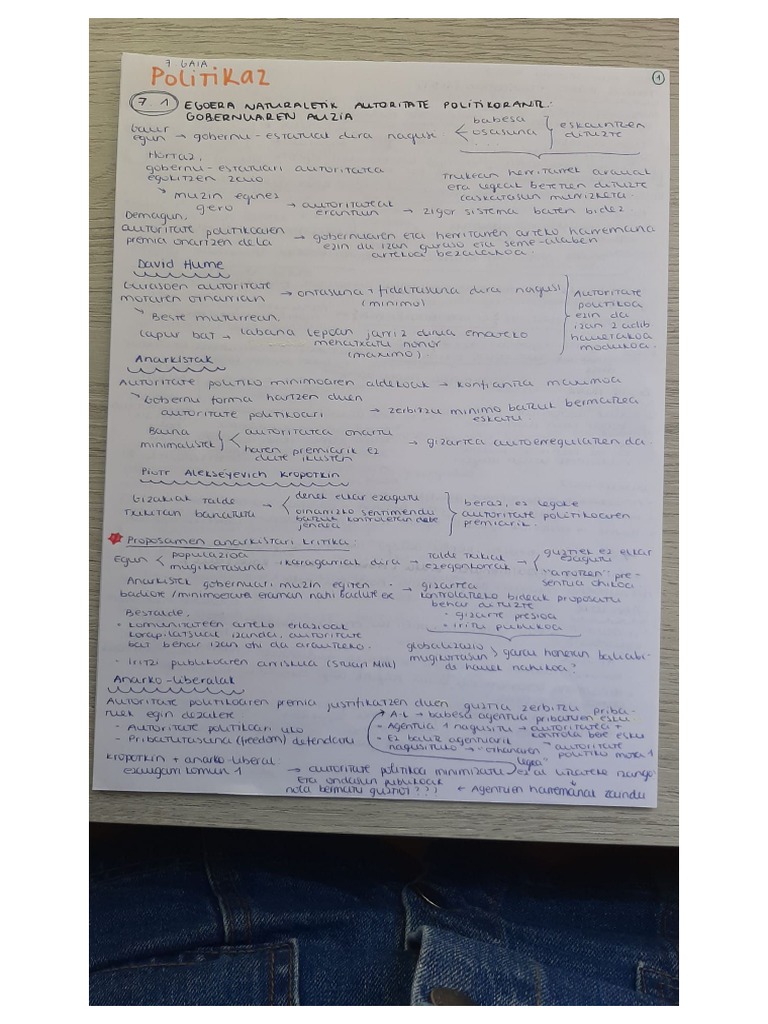 7 GAIA
POLITIKAZ
1
7.1 EGOERA NATURALETIK AUTORITATE POLITIKORANTZ:
GOBERNUAREN AUZIA
Gaur egun → gobernu-estatuak dira nagusi < babesa osasuna } eskaintzen dituzte
Hortaz,
gobernu-estatuari autoritatea
egokitzen zaio
trukean herritarrek arauak
era legeak betetzen dituzte
(askatasun murrizketa).
muzin eginez gero → autoritateak erantzun → zigor sistema baten bidez
Demagun,
autoritate politikoaren
premia onartzen dela → gobernuaren eta herritarren arteko harremana
ezin da izan guraso eta seme-alaben
artekoa bezalakoa.
David Hume
Gurasoen autoritate
motaren oinarrian → ontasuna + fideltasuna dira nagusi
(minimo)
Beste muturrean.
Lapur bat → labana lepoan jarriz dirua emateko
mehatxatu nonor
(maximo).
Autoritate
politikoa
ezin da
izan 2 adib
hauetakoa
modukoa.
Anarkistak
Autoritate politiko minimoaren aldekoak → konfiantza maximoa
Gobernu forma hartzen duen
autoritate politikoari → zerbitzu minimo batzuk bermatzea
eskatu
Baina
minimalistek { < autoritatea onartu
haren premiarik ez
dute ikusten → gizartea autoerregulatzen da.
Piotr Alekséyevich Kropotkin
Gizakiak talde
txikitan banatuta → < denek elkar ezagutu
oinarrizko sentimendu
batzuk kontroletan dabe
jendea } beraz, ez legoke
autoritate politikoaren
premiarik.
Proposamen anarkistari kritika:
Egun < populazioa
mugikortasuna ikaragarriak dira → talde txikiak
ezegonkorrak → < guztiek ez elkar
ezagutu
"arrotzen" pre-
sentzia chikoa
Anarkistek gobernuari muzin egiten
badiote/minimoetara eraman nahi badute ex → gizartea
kontrolatzeko bideak proposatu
behar dituzte
- gizarte presioa
- iritzi publikoa
Bestalde,
• komunitateen arteko erlazioak
korapilatsuak izanda, autoritate
bat behar izan ohi da arautzeko.
• Iritzi publikoaren arriskua (Stuart Mill)
globalizazio
mugikortasun > garai honetan baliabi-
de hauek nahikoa?
Anarko-liberalak
Autoritate politikoaren premia justifikatzen duen guztia zerbitzu priba-
tuek egin dezakete
- Autoritate politikoari uko
- Pribatutasuna (freedom) defendatu
- A-L → babesa agentzia pribatuen esku
- Agentzia 1 nagusitu → autoritatea +
kontrola bere esku
- Ez balitz agentziarik
nagusituko → "oihanaren
legea" autoritate
politiko mota 1
Kropotkin + anarko-liberal
ezaugarri komun 1 → autoritate politikoa minimizatu
eta ondasun publikoak
nola bermatu guztioi???
ez al litzateke izango
← Agentzien harremanak zaindu